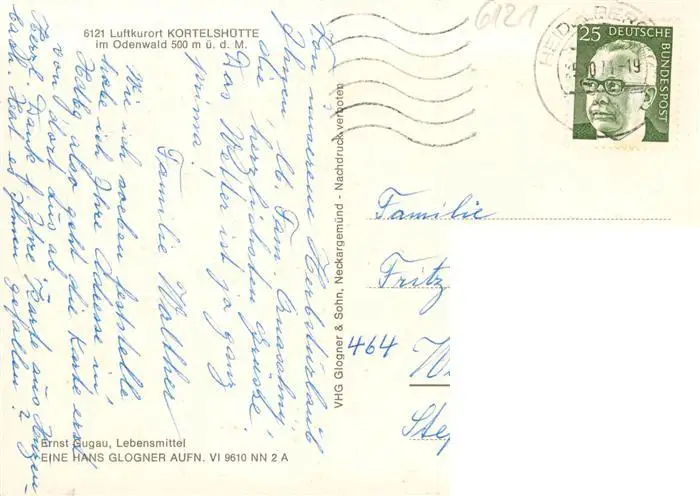 6121 Luftkurort KORTELSHÜTTE
im Odenwald 500 m ü. d. M.
6121
HEIDELBERG
-19
25 DEUTSCHE
BUNDESPOST
Von unserem Herbsturlaub
Ihnen, lb. Fam.
die herzlichsten Grüsse.
Das Wetter ist ja ganz
prima!
Familie Walther
Wie ich soeben feststelle
habe ich Ihre Adresse in
also geht die Karte erst
von dort aus ab.
Herzl. Dank f. Ihre Karte aus
Hat es Ihnen gefallen?
VHG Glogner & Sohn, Neckargemünd - Nachdruck verboten
Familie
Fritz
464 W
Ste
Ernst Gugau, Lebensmittel
EINE HANS GLOGNER AUFN. VI 9610 NN 2 A